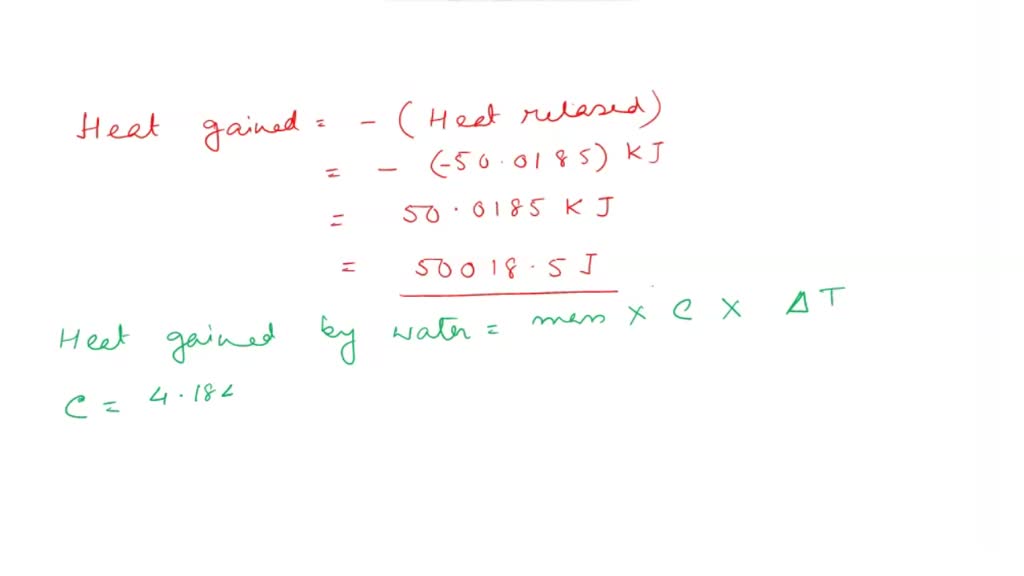 Heat gained = - (Heat relased)
= - (-50.0185) KJ
= 50.0185 KJ
= 50018.5 J
Heat gained by water = mass × C × ΔT
C = 4.184